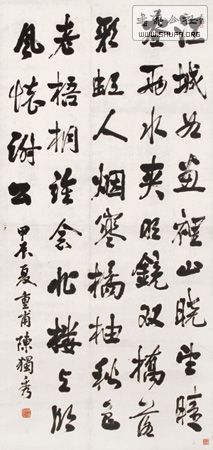 江城如畫裡山曉望晴
空兩水夾明鏡雙橋落
彩虹人烟寒橘柚秋色
老梧桐誰念北樓上臨
風懷謝公
甲辰夏重甫陳獨秀
WWW.SHUFA.ORG